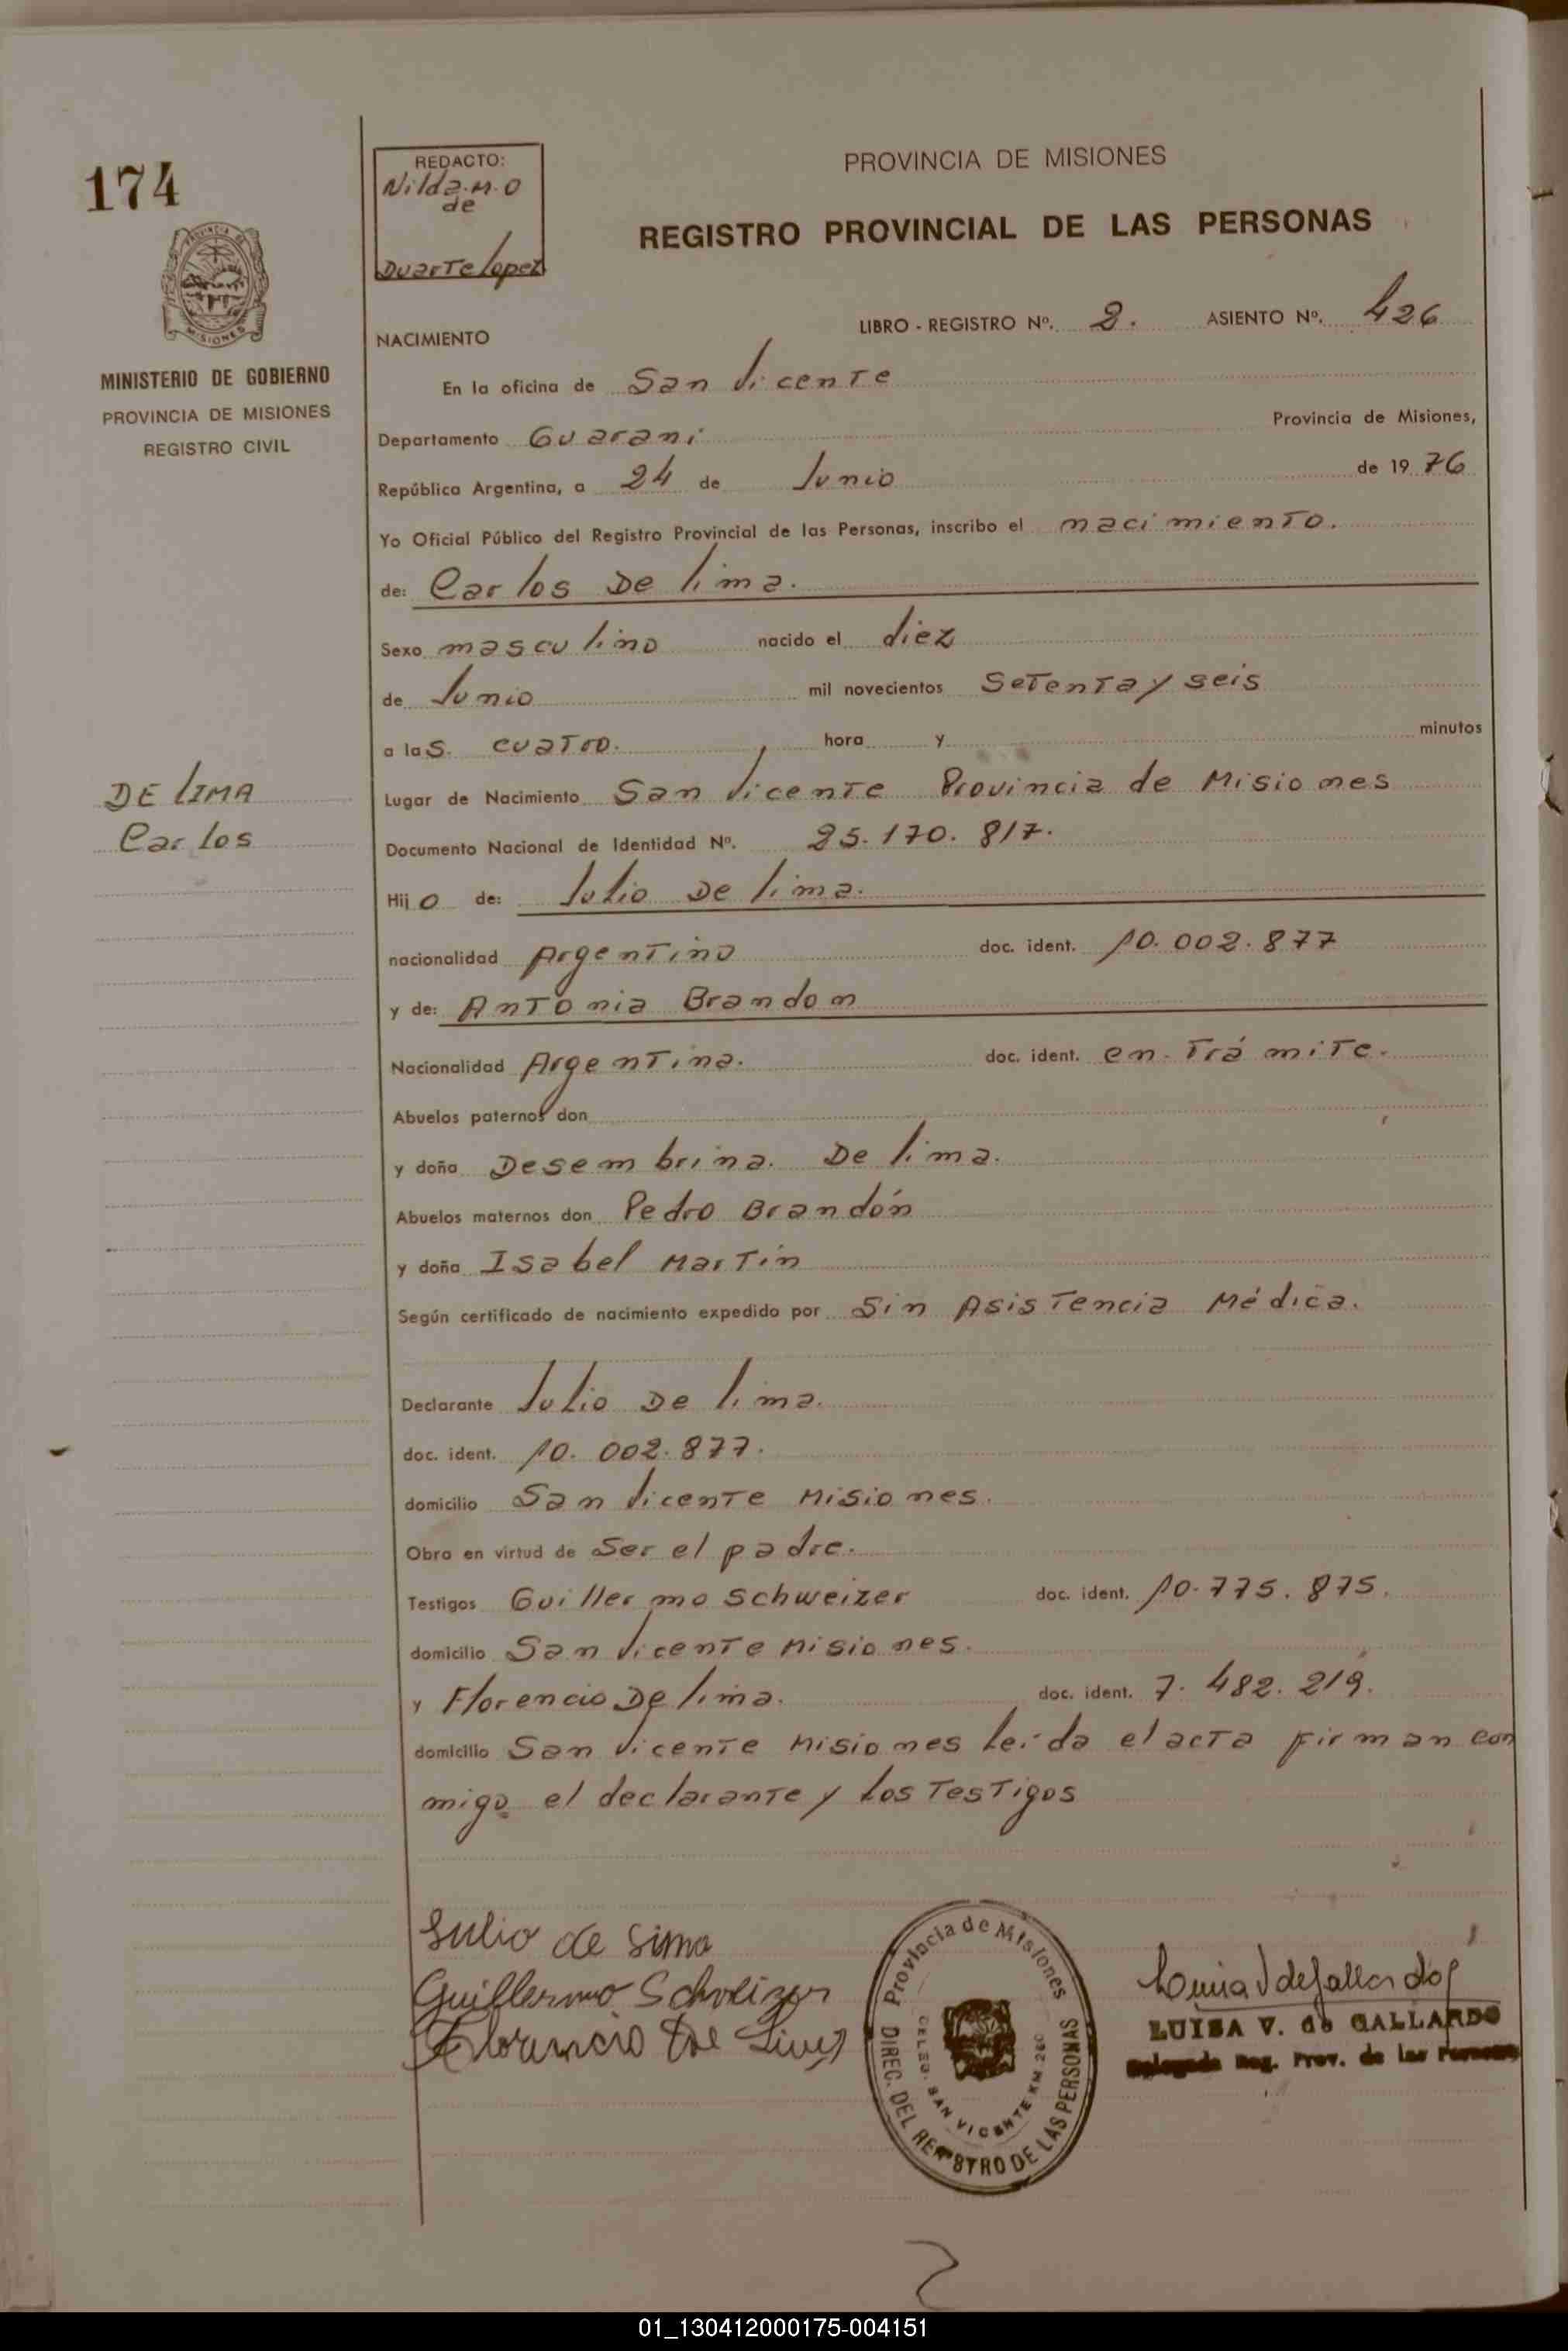 174
REDACTO:
Nilda.M.O
de
Duarte Lopez
PROVINCIA DE MISIONES
REGISTRO PROVINCIAL DE LAS PERSONAS
PROVINCIA DE
MISIONES
MINISTERIO DE GOBIERNO
PROVINCIA DE MISIONES
REGISTRO CIVIL
LIBRO - REGISTRO Nº. 2. ASIENTO Nº. 426
NACIMIENTO
En la oficina de San Vicente
Departamento Guarani Provincia de Misiones,
República Argentina, a 24 de Junio de 19 76
Yo Oficial Público del Registro Provincial de las Personas, inscribo el nacimiento.
de: Carlos De lima.
Sexo masculino nacido el diez
de Junio mil novecientos Setenta y seis
a las. cuatro. hora y minutos
DE LIMA
Carlos
Lugar de Nacimiento San Vicente Provincia de Misiones
Documento Nacional de Identidad Nº. 25.170.817.
Hijo de: Julio De lima.
nacionalidad Argentino doc. ident. 10.002.877
y de: Antonia Brandon
Nacionalidad Argentina. doc. ident. en-Trámite.
Abuelos paternos don
y doña Desembrina. De lima.
Abuelos maternos don Pedro Brandón
y doña Isabel Martín
Según certificado de nacimiento expedido por Sin Asistencia Médica.
Declarante Julio De lima.
doc. ident. 10.002.877.
domicilio San Vicente Misiones.
Obra en virtud de Ser el padre.
Testigos Guillermo Schweizer doc. ident. 10.775.875.
domicilio San Vicente Misiones.
y Florencio De lima. doc. ident. 7.482.219.
domicilio San Vicente Misiones Leída el acta firman con
migo el declarante y los Testigos
Julio de Lima
Guillermo Schweizer
Florencio De Lima
Provincia de Misiones
DELEG. SAN VICENTE KM 260
DIREC. DEL REGISTRO DE LAS PERSONAS
Luisa V de Gallardo
LUISA V. de GALLARDO
Delegada Reg. Prov. de las Personas
01_130412000175-004151